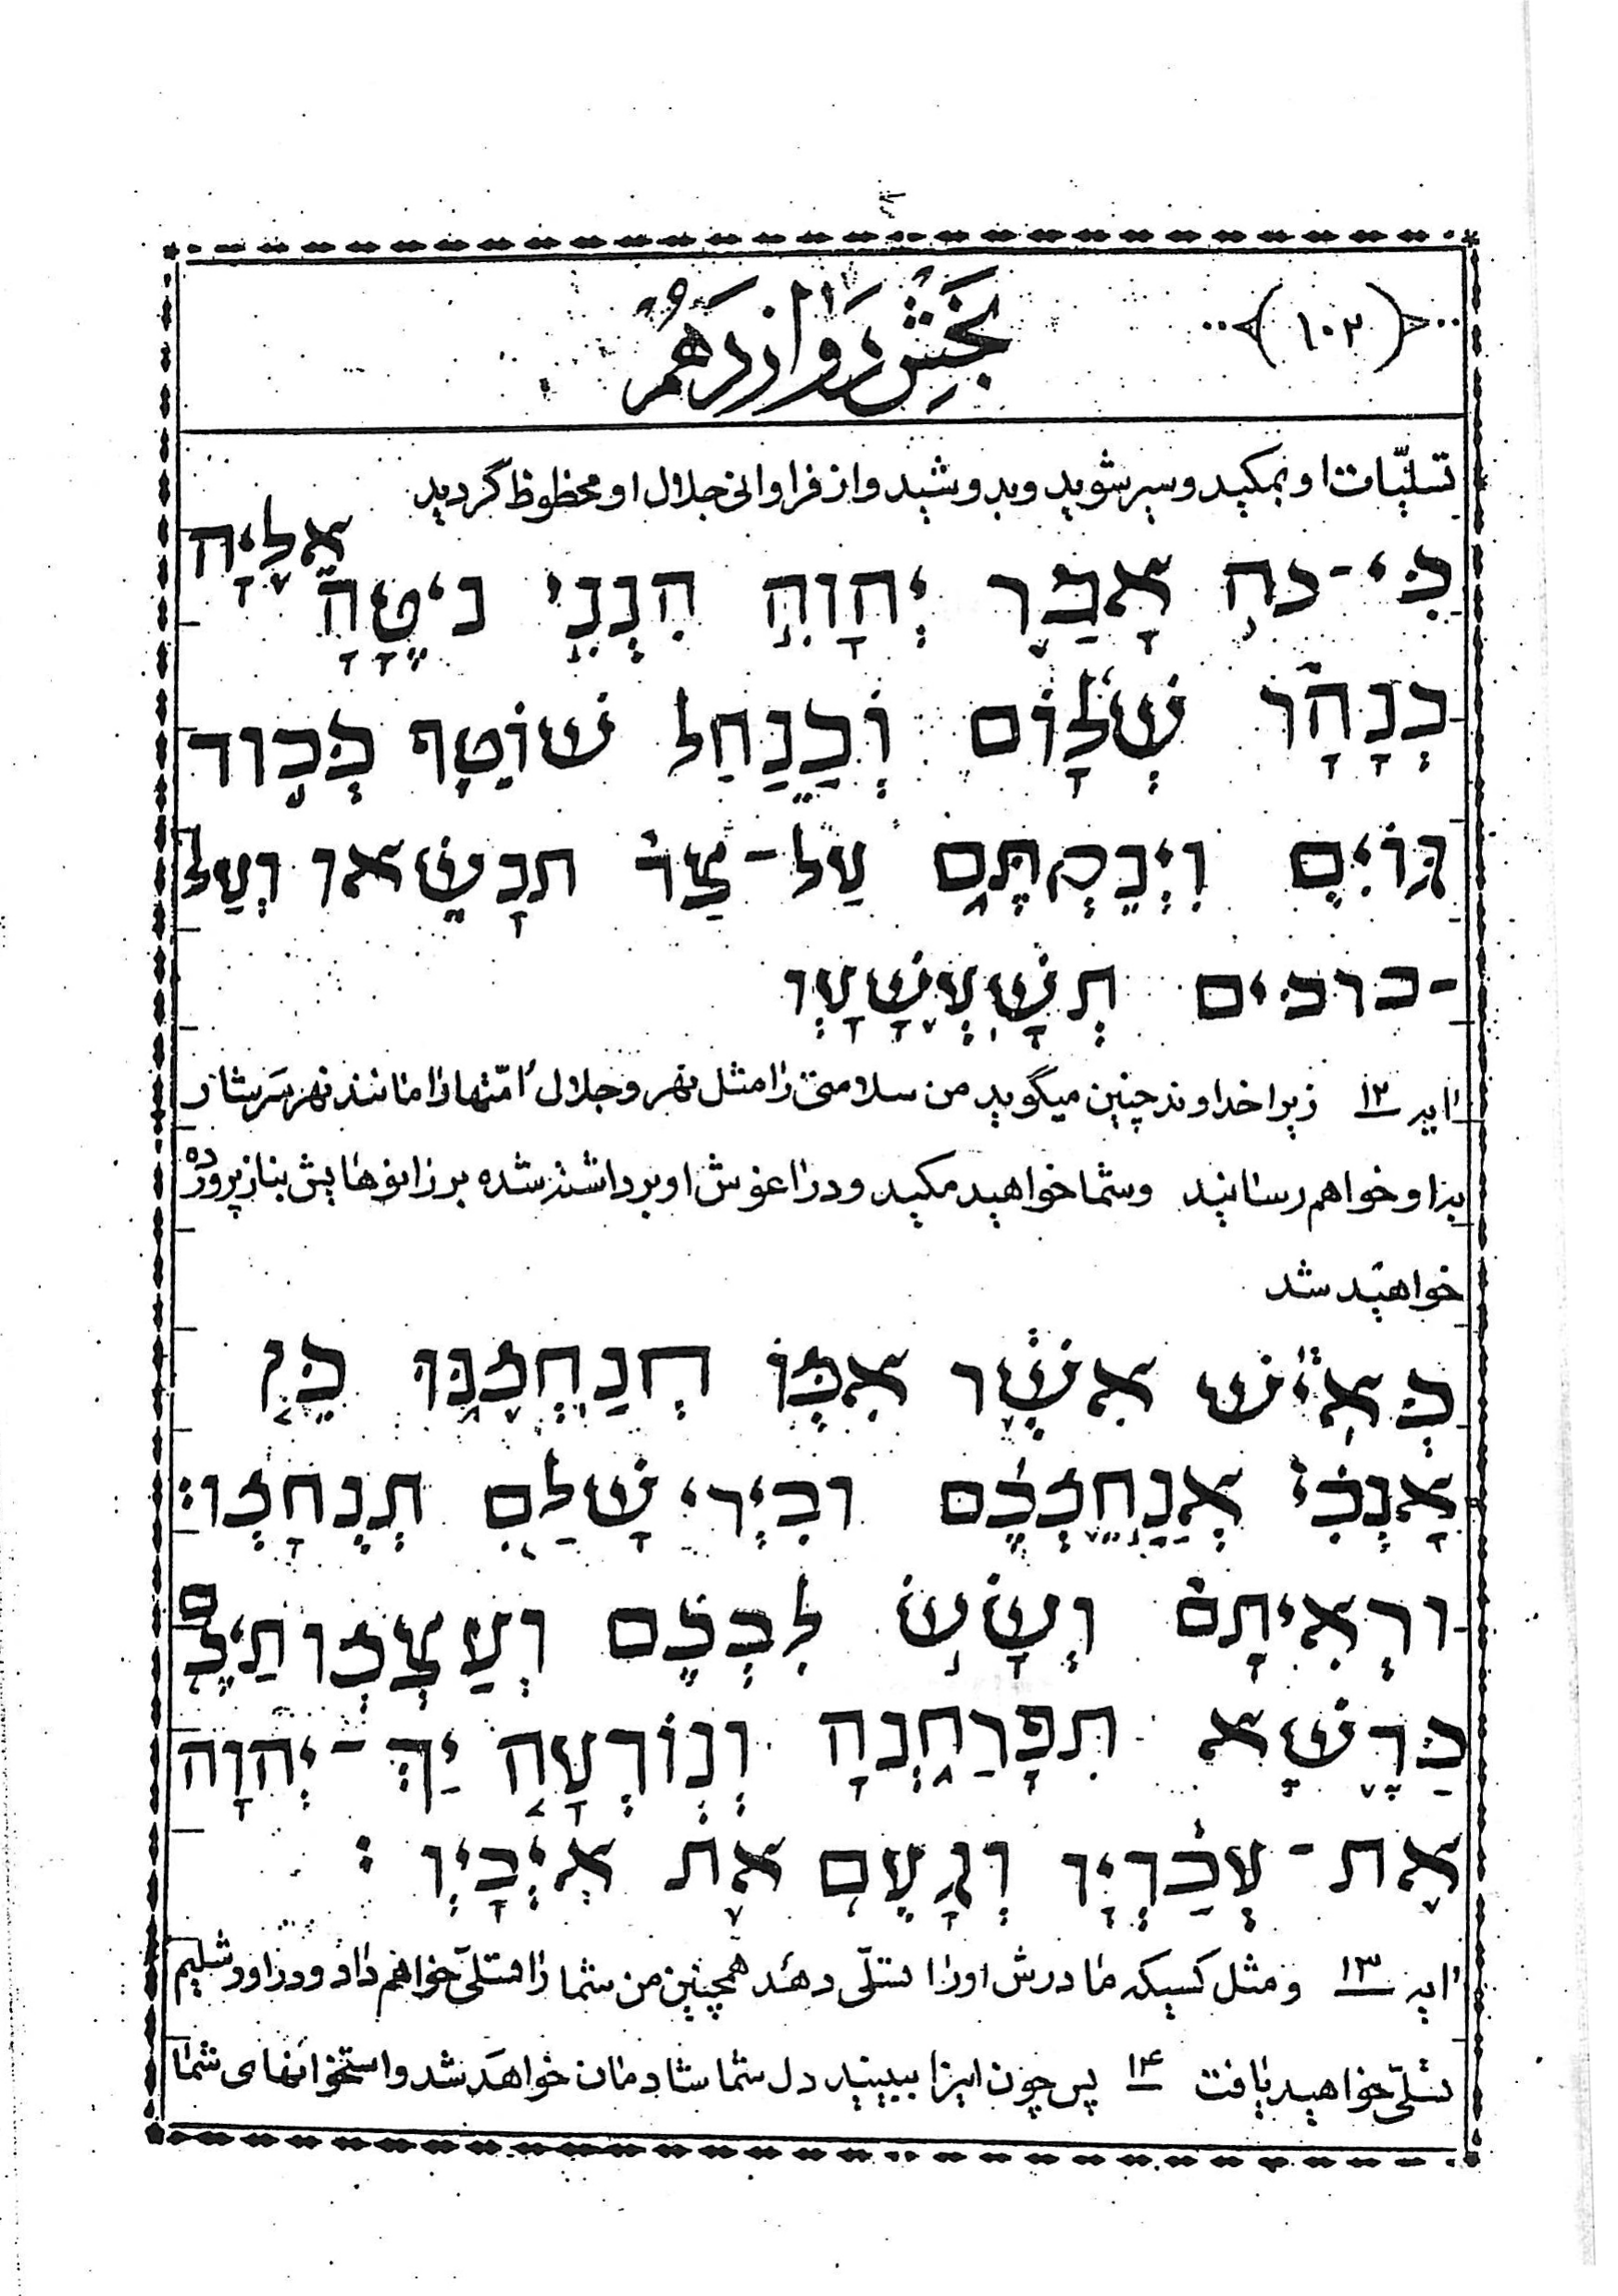 ﴿١٠٢﴾
بخش دوازدهم
تسلیّات او بمکید و سیر شوید و بدوشید و از فراوانی جلال او محظوظ گردید
כִּי-כֹה אָמַר יְהוָה הִנְנִי נֹיטֶהָ אֵלֶיהָ
כְּנָהָר שָׁלוֹם וּכְנַחַל שׁוֹטֵף כְּבוֹד
גּוֹיִם וִינַקְתֶּם עַל-צַד תִּנָשֵׂאוּ וְעַל
-ברבים תְּשָׁעֳשָׁעוּ
ایه ١٢ زیرا خداوند چنین میگوید من سلامتی را مثل نهر و جلال اُمّتها را مانند نهر سَرشار
بزاو خواهم رسانید وشما خواهید مکید و در اغوش او برداشته شده بر زانوهایش بناز پرورده
خواهید شد
כְּאִישׁ אִשֶׁר אִמּוֹ תְנַחֲמֶנּוּ כֵּן
אָנֹכִי אֲנַחֶמְכֶם וּבִירִי שָׁלַם תְּנֻחָמוּ:
ורְאִיתָם וְשָׂשׂ לִבְּכֶם וְעַצְמוֹתַיכֶם
כַּדֶשֶׁא תִפְרַחְנָה וְנוֹדְעָה יַד-יְהוָה
אֶת-עֲבַדָיו וְזָעַם אֶת אֹיְבָיו:
ایه ١٣ و مثل کسیکه مادرش او را تسلّی دهد همچنین من شما را تسلّی خواهم داد و در اورشلیم
تسلّی خواهید یافت ١٤ پس چون اینرا ببینید دل شما شادمان خواهَد شد و استخوانهای شما